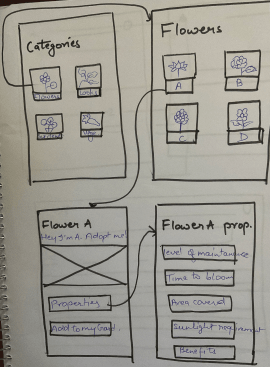 Categories
Flowers
Flowers
A
B
C
D
Flower A
Hey I'm A. Adopt me!
Properties
Add to my Gard.
Flower A prop.
level of maintanance
Time to bloom
Area covered
Sunlight requirement
Benefits